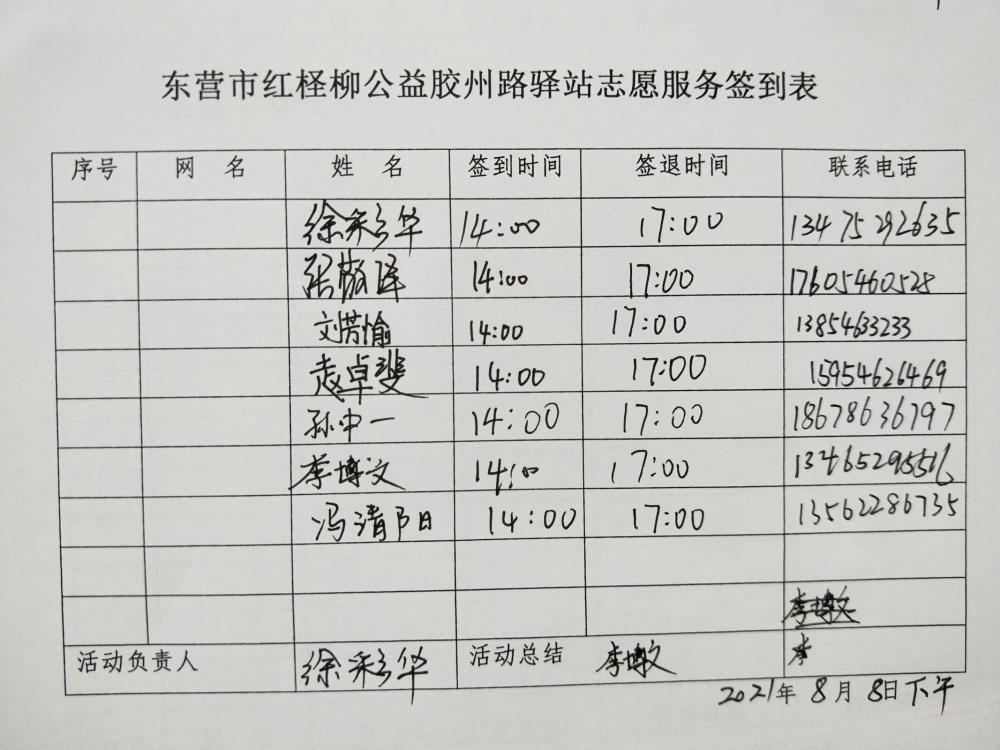 东营市红柽柳公益胶州路驿站志愿服务签到表
序号 网 名 姓 名 签到时间 签退时间 联系电话
徐彩华 14:00 17:00 13475292635
张敬泽 14:00 17:00 17605460528
刘芳愉 14:00 17:00 13854633233
赵卓斐 14:00 17:00 15954626469
孙中一 14:00 17:00 18678636797
李博文 14:00 17:00
冯清阳 14:00 17:00 13562286735
李博文
活动负责人 徐彩华 活动总结 李博文 李
2021年 8月 8日下午